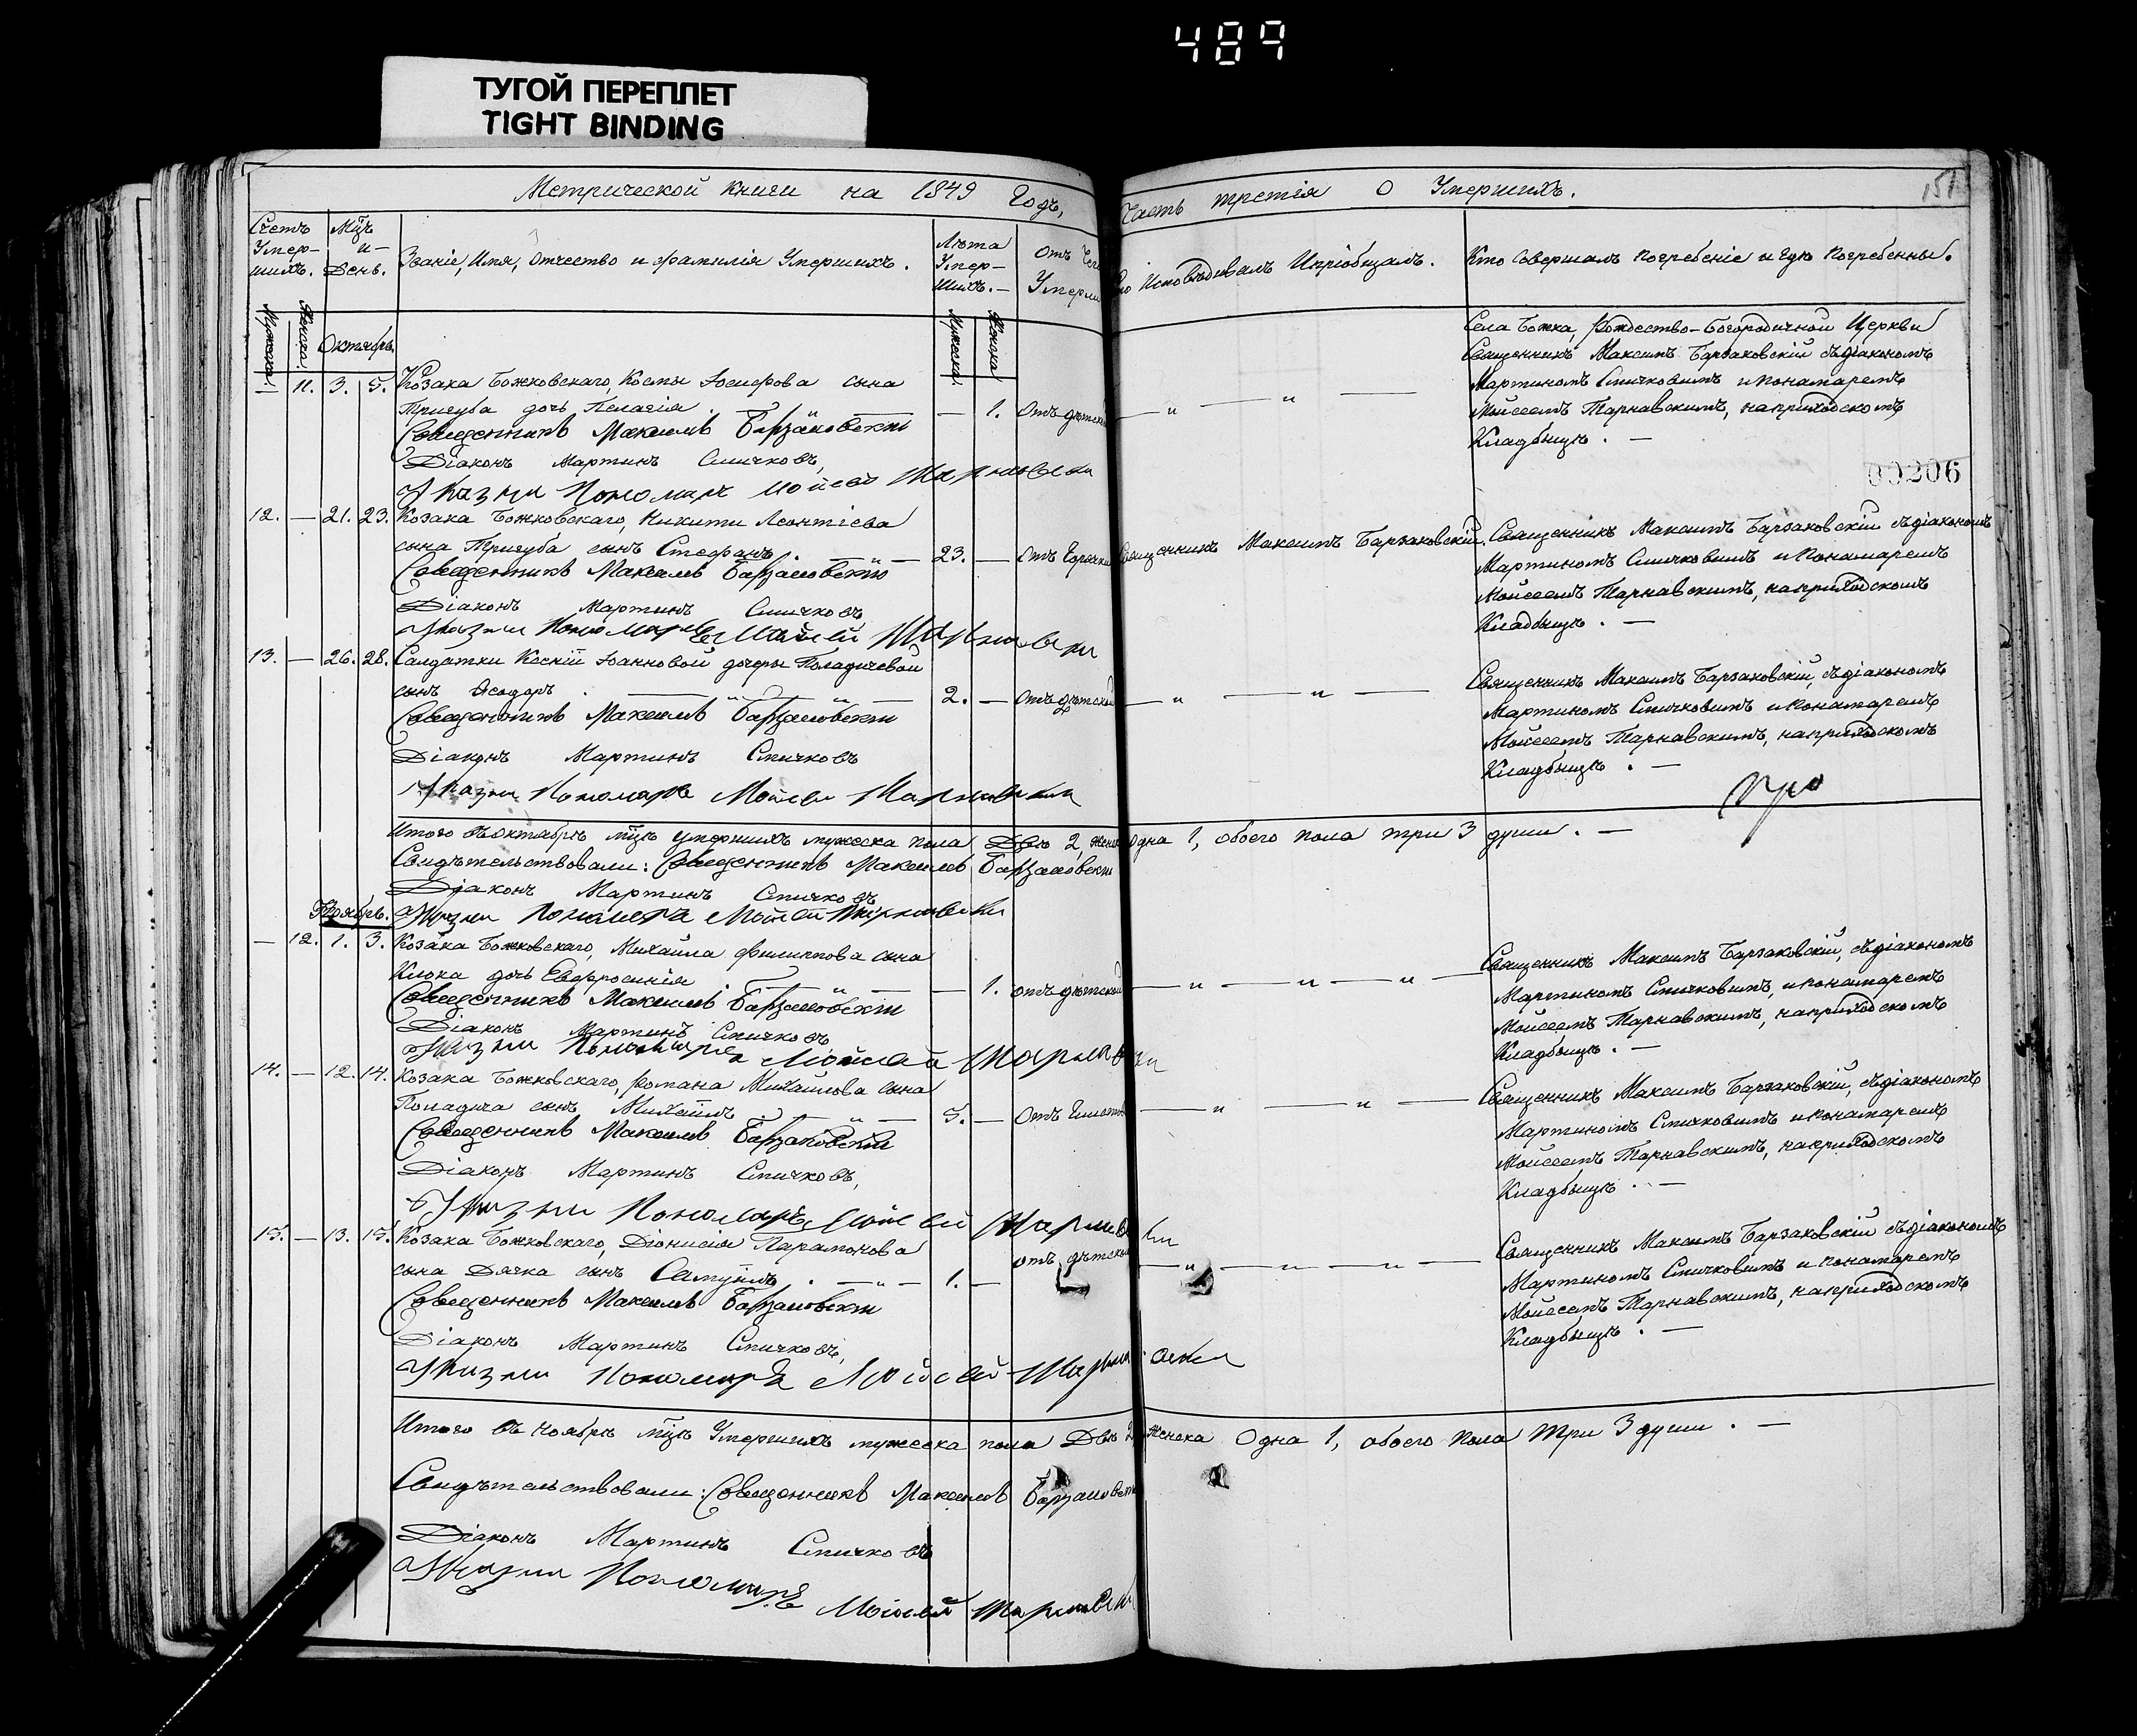 489
ТУГОЙ ПЕРЕПЛЕТ
TIGHT BINDING
Метрической книги на 1849 Годъ, Часть третія О Умершихъ.
151
Счетъ Умер-шихъ.
Мцъ и День.
Званіе, Имя, Отчество и фамилія Умершихъ.
Лѣта Умер-шихъ.
Отъ чего Умерли
Кто Исповѣдивалъ Ипріобщалъ.
Кто Совершалъ погребеніе и Гдѣ Погребенны.
Мужеска. Женска.
Октябрь.
Мужеска. Женска
— 11. 3. 5. Козака Божковскаго, Космы Іосифова сына
Пригуба дочь Пелагія. — " — — 1. Отъ дѣтской — " — " —
Священникъ Максимъ Барзаковскій
Діаконъ Мартинъ Спичковъ,
Пономарь Мойсей Тарнавски
Села Божка, Рождество-Богородичной Церкви
Священникъ Максимъ Барзаковскій съдіакономъ
Мартиномъ Спичковимъ ипонамаремъ
Мойсеемъ Тарнавскимъ, наприходскомъ
Кладбищѣ. —
00206
12. — 21. 23. Козака Божковскаго, Никити Леонтіева
сына Пригуба сынъ Стефанъ. — " — 23. — Отъ Горячки Священникъ Максимъ Барзаковскій.
Священникъ Максимъ Барзаковскій
Діаконъ Мартинъ Спичковъ
Пономарь Мойсей Тарнавски
Священникъ Максимъ Барзаковскій съдіакономъ
Мартиномъ Спичковимъ ипонамаремъ
Мойсеемъ Тарнавскимъ, наприходскомъ
Кладбищѣ. —
13. — 26. 28. Салдатки Ксеніи Іоанновой дочеры Поладичевой
сынъ Ѳеодоръ. — " — " — 2. — Отъ дѣтской — " — " —
Священникъ Максимъ Барзаковскій
Діаконъ Мартинъ Спичковъ
Пономарь Мойсей Тарнавски
Священникъ Максимъ Барзаковскій, съдіакономъ
Мартиномъ Спичковимъ ипонамаремъ
Мойсеемъ Тарнавскимъ, наприходскомъ
Кладбищѣ. —
Итого въоктябрѣ мцѣ умершихъ мужеска пола Двѣ 2, женс Одна 1, обоего пола три 3 души. —
Свидѣтельствовали: Священникъ Максимъ Барзаковскій
Діаконъ Мартинъ Спичковъ
Пономарь Мойсей Тарнавски
Ноябрь.
— 12. 1. 3. Козака Божковскаго, Михаила Филиппова сына
Клюка дочь Евфросинія. — " — — 1. отъ дѣтской — " — " — " —
Священникъ Максимъ Барзаковскій
Діаконъ Мартинъ Спичковъ
Пономарь Мойсей Тарнавски
Священникъ Максимъ Барзаковскій, съдіакономъ
Мартиномъ Спичковимъ, ипонамаремъ
Мойсеемъ Тарнавскимъ, наприходскомъ
Кладбищѣ. —
14. — 12. 14. Козака Божковскаго, Романа Михайлова сына
Поладича сынъ Михаилъ. — " — 5. — Отъ — " — " —
Священникъ Максимъ Барзаковскій
Діаконъ Мартинъ Спичковъ,
Пономарь Мойсей Тарнавски
Священникъ Максимъ Барзаковскій, съдіакономъ
Мартиномъ Спичковимъ ипонамаремъ
Мойсеемъ Тарнавскимъ, наприходскомъ
Кладбищѣ. —
15. — 13. 15. Козака Божковскаго, Діонисія Парамонова
сына Дячка сынъ Самуилъ. — " — 1. — отъ дѣтской — " — " — " —
Священникъ Максимъ Барзаковскій
Діаконъ Мартинъ Спичковъ,
Пономарь Мойсей Тарнавски
Священникъ Максимъ Барзаковскій съдіакономъ
Мартиномъ Спичковимъ ипонамаремъ
Мойсеемъ Тарнавскимъ, наприходскомъ
Кладбищѣ. —
Итого въ ноябрѣ мцѣ Умершихъ мужеска пола Двѣ 2 женска Одна 1, обоего пола Три 3 души. —
Свидѣтельствовали: Священникъ Максимъ Барзаковскій
Діаконъ Мартинъ Спичковъ
Пономарь Мойсей Тарнавски